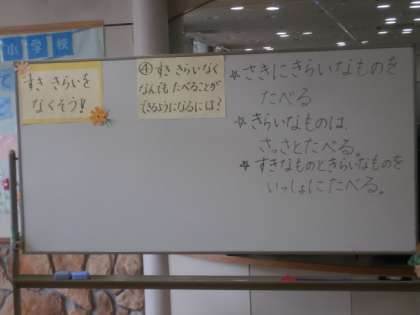 小学校
すき きらいを
なくそう!
④すききらいなく
なんでもたべることが
できるようになるには?
☆さきにきらいなものを
たべる
☆きらいなものは、
さっさとたべる。
☆すきなものときらいなものを
いっしょにたべる。